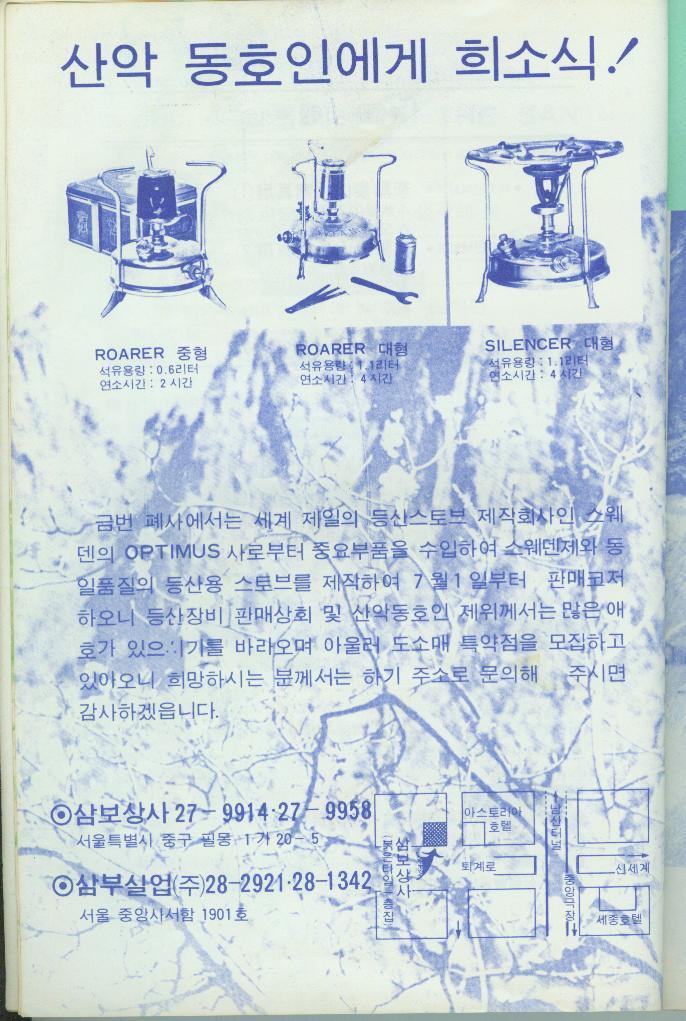 산악 동호인에게 희소식!
ROARER 중형
석유용량 : 0.6리터
연소시간 : 2시간
ROARER 대형
석유용량 : 1.1리터
연소시간 : 4시간
SILENCER 대형
석유용량 : 1.1리터
연소시간 : 4시간
금번 폐사에서는 세계 제일의 등산스토브 제작회사인 스웨
덴의 OPTIMUS 사로부터 중요부품을 수입하여 스웨덴제와 동
일품질의 등산용 스토브를 제작하여 7월1일부터 판매코저
하오니 등산장비 판매상회 및 산악동호인 제위께서는 많은 애
호가 있으시기를 바라오며 아울러 도소매 특약점을 모집하고
있아오니 희망하시는 분께서는 하기 주소로 문의해 주시면
감사하겠읍니다.
⊙삼보상사 27-9914·27-9958
서울특별시 중구 필동 1가 20-5
⊙삼부실업(주)28-2921·28-1342
서울 중앙사서함 1901호
아스토리아
호텔
남산터널
삼보상사
퇴계로
신세계
중앙극장
세종호텔